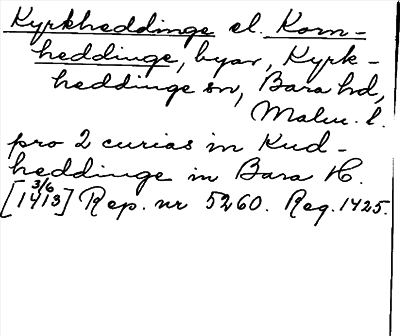 Kyrkheddinge el. Korn-
heddinge, byar, Kyrk-
heddinge sn, Bara hd,
Malm. l.
pro 2 curias in Kud-
heddinge in Bara H.
3/6
[1413] Rep. nr 5260. Reg. 1425.